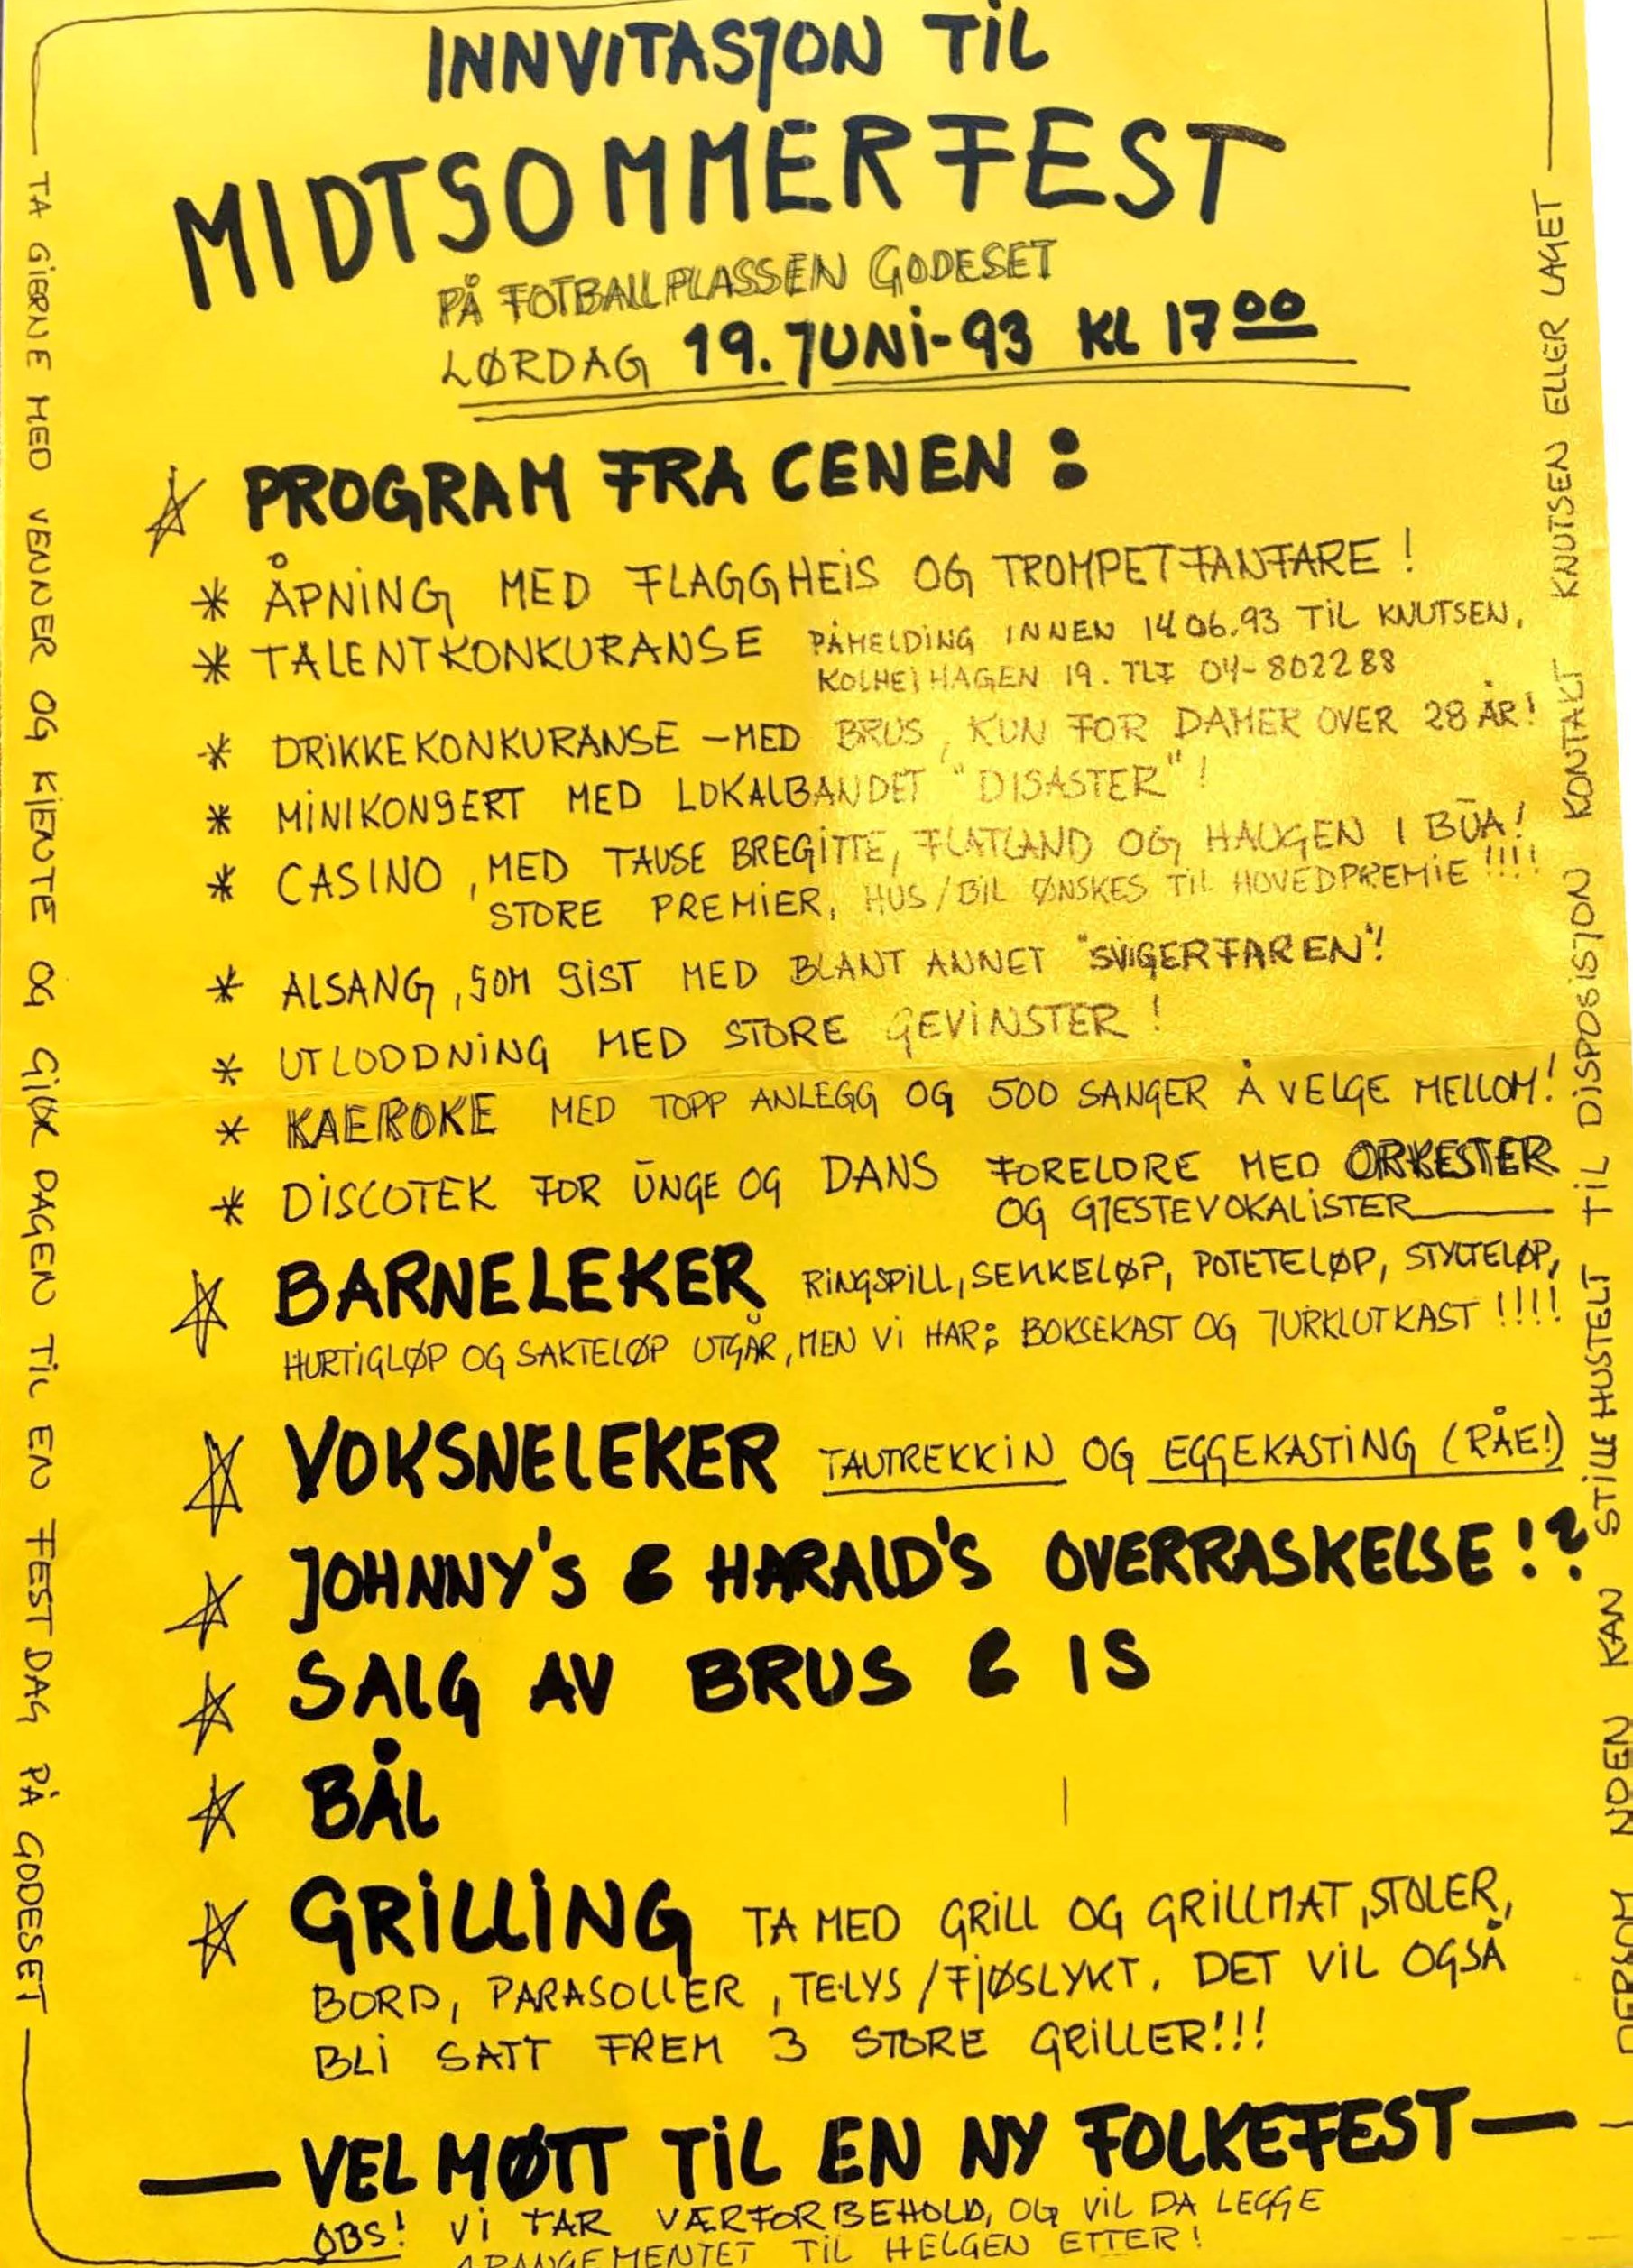 INNVITASJON TIL
MIDTSOMMERFEST
PÅ FOTBALLPLASSEN GODESET
LØRDAG 19. JUNI-93 KL 17 00
PROGRAM FRA CENEN :
* ÅPNING MED FLAGGHEIS OG TROMPETFANFARE !
* TALENTKONKURANSE PÅMELDING INNEN 14.06.93 TIL KNUTSEN,
KOLHEIHAGEN 19. TLF 04-802288
* DRIKKEKONKURANSE - MED BRUS, KUN FOR DAMER OVER 28 ÅR!
* MINIKONSERT MED LOKALBANDET "DISASTER"!
* CASINO, MED TAUSE BREGITTE, FLATLAND OG HAUGEN I BUA!
STORE PREMIER, HUS/BIL ØNSKES TIL HOVEDPREMIE !!!!
* ALSANG, SOM SIST MED BLANT ANNET "SVIGERFAREN"!
* UTLODDNING MED STORE GEVINSTER !
* KAEROKE MED TOPP ANLEGG OG 500 SANGER Å VELGE MELLOM!
* DISCOTEK FOR UNGE OG DANS FORELDRE MED ORKESTER
OG GJESTEVOKALISTER
BARNELEKER RINGSPILL, SEKKELØP, POTETELØP, STYLTELØP,
HURTIGLØP OG SAKTELØP UTGÅR, MEN VI HAR: BOKSEKAST OG JURKLUTKAST !!!!
VOKSNELEKER TAUTREKKIN OG EGGEKASTING (RÅE!)
JOHNNY'S & HARALD'S OVERRASKELSE !?
SALG AV BRUS & IS
BÅL
GRILLING TA MED GRILL OG GRILLMAT, STOLER,
BORD, PARASOLLER, TELYS / FJØSLYKT. DET VIL OGSÅ
BLI SATT FREM 3 STORE GRILLER!!!
— VEL MØTT TIL EN NY FOLKEFEST —
OBS! VI TAR VÆRFORBEHOLD, OG VIL DA LEGGE
ARANGEMENTET TIL HELGEN ETTER!
TA GJERNE MED VENNER OG KJENTE OG GJØR DAGEN TIL EN FESTDAG PÅ GODESET
DERSOM NOEN KAN STILLE HUSTELT TIL DISPOSISJON KONTAKT KNUTSEN ELLER LAGET